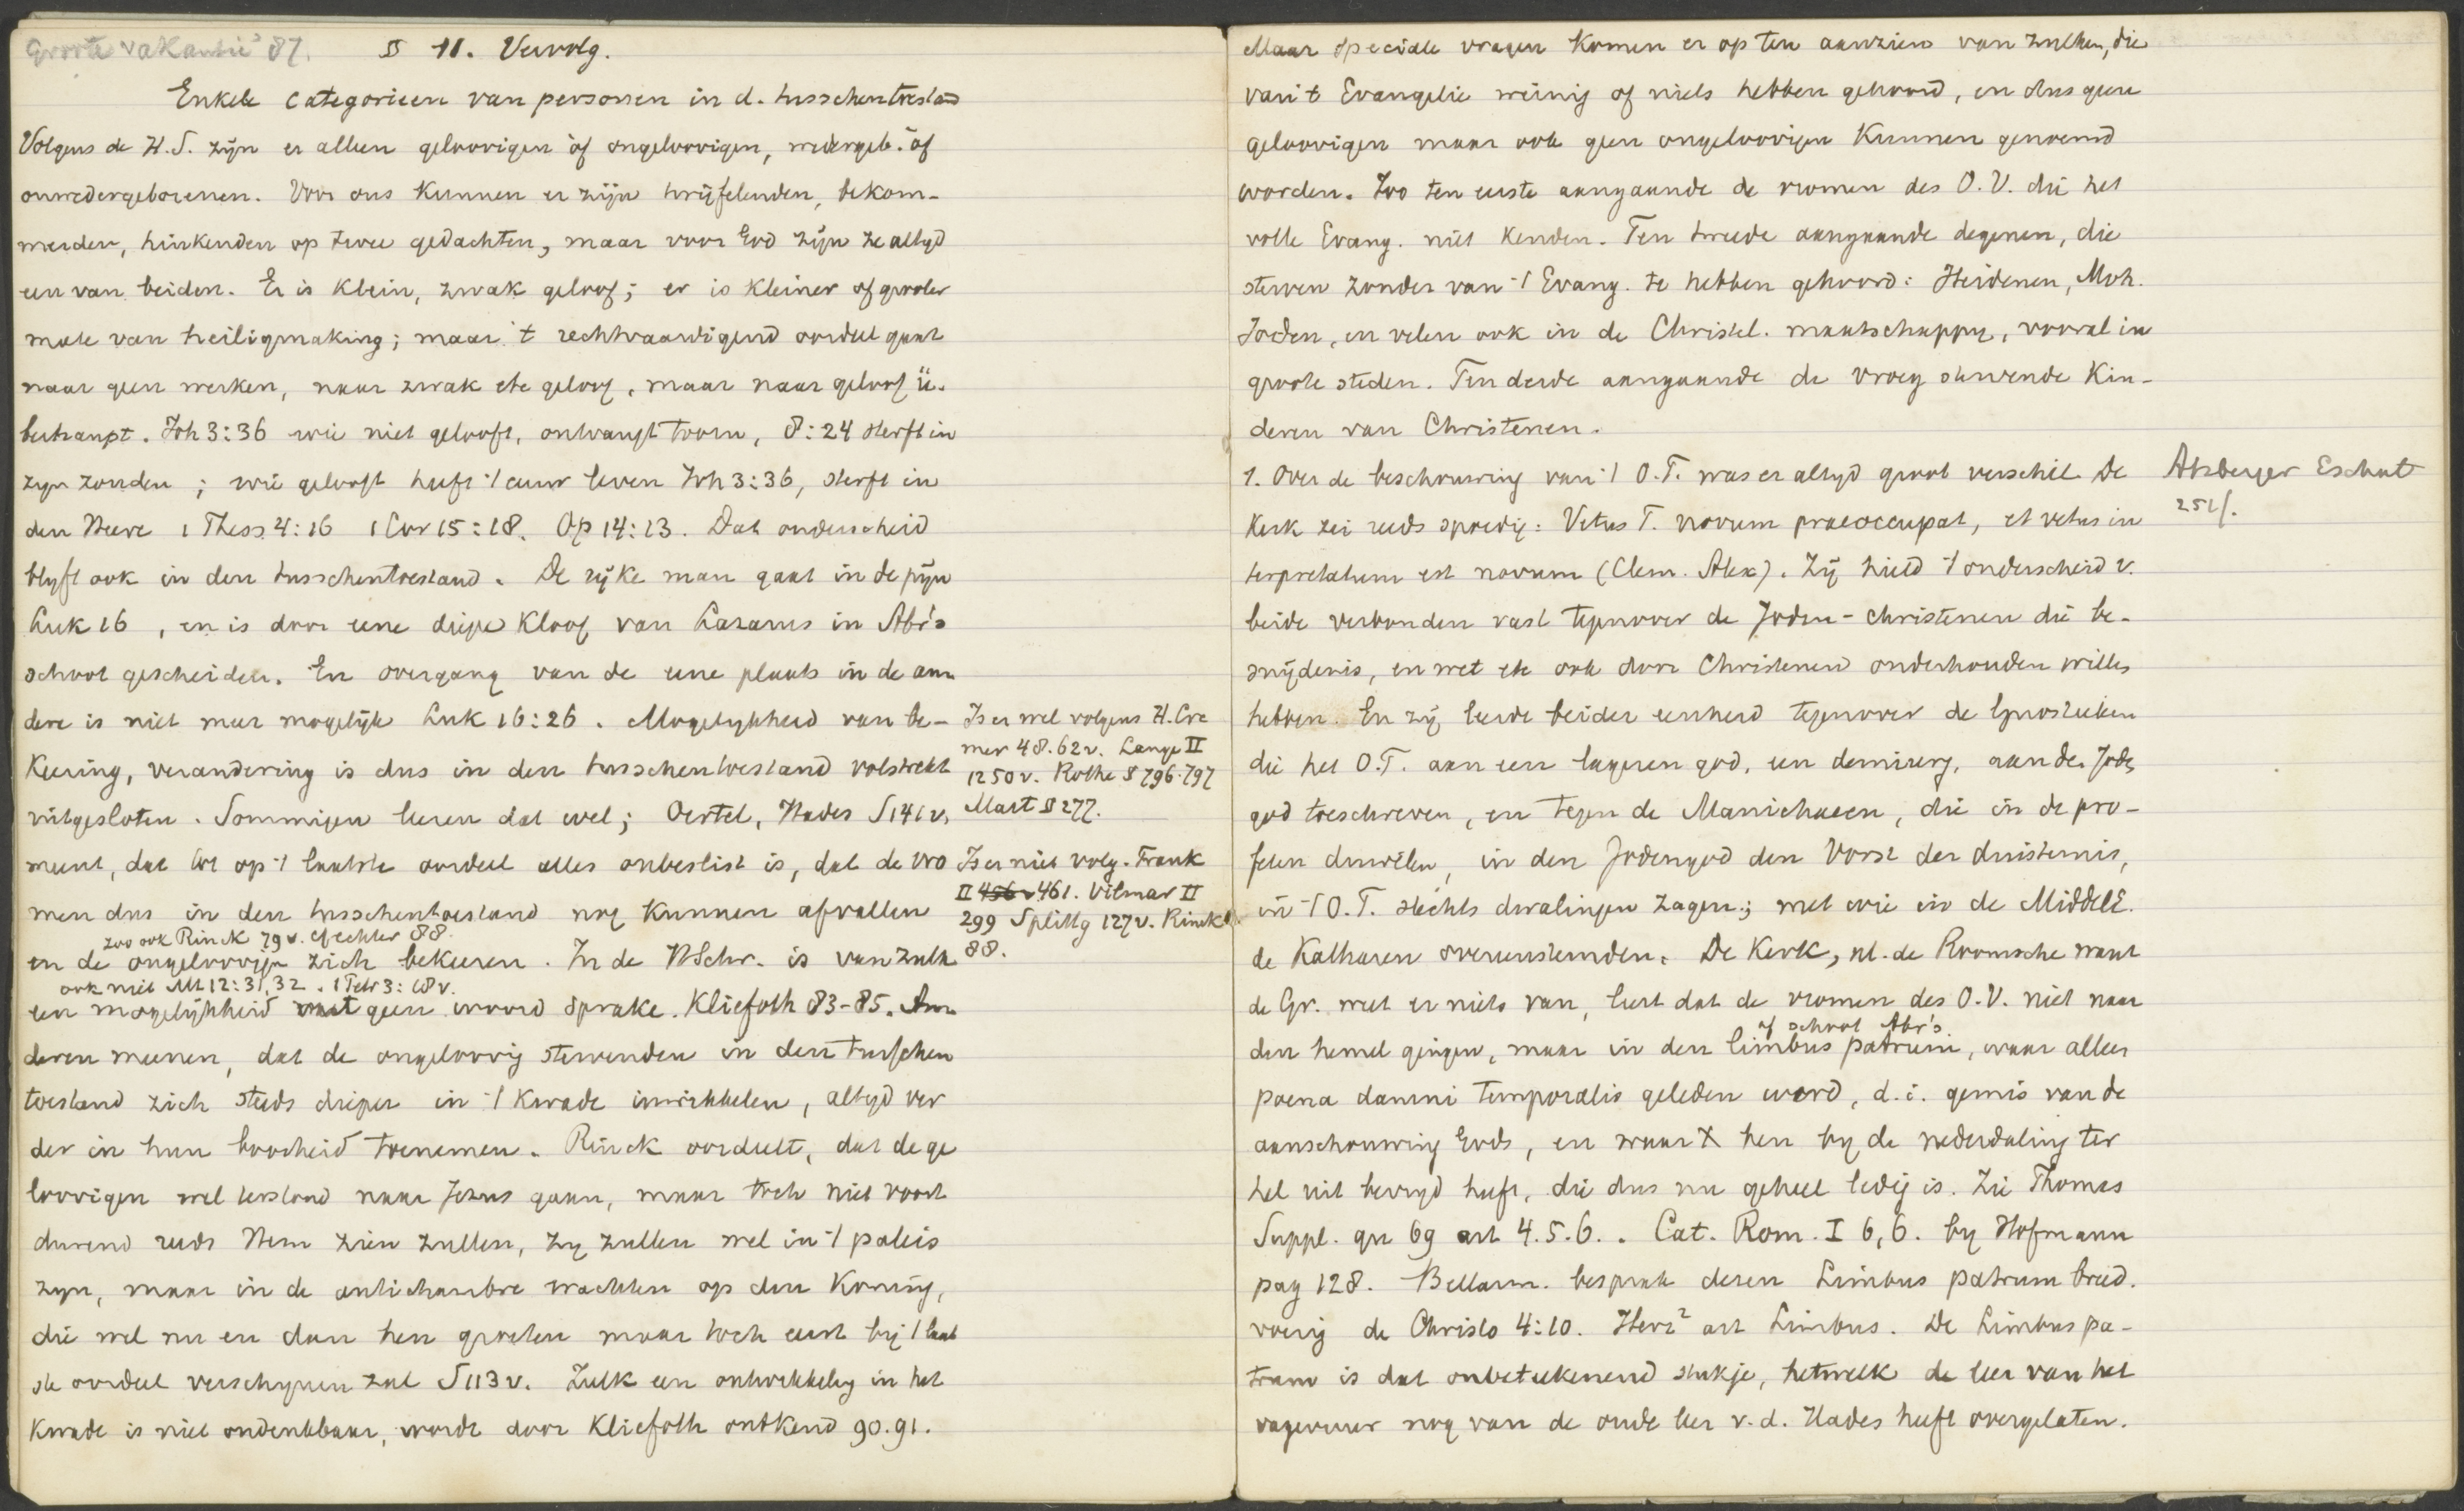 Groote vakantie '87. § 11. Vervolg.
Enkele categorieen van personen in d. tusschentoestand
Volgens de H.S. zijn er alleen geloovigen òf ongeloovigen, wedergeb. òf
onwedergeborenen. Voor ons kunnen er zijn twijfelenden, bekom-
merden, hinkenden op twee gedachten, maar voor God zijn ze altyd
een van beiden. Er is klein, zwak geloof; er is kleiner of grooter
mate van heiligmaking; maar 't rechtvaardigend oordeel gaat
naar geen werken, naar zwak etc geloof, maar naar geloof ü-
berhaupt. Joh 3:36 wie niet gelooft, ontvangt toorn, 8:24 sterft in
zyn zonden; wie gelooft heeft 't eeuw leven Joh 3:36, sterft in
den Heere 1 Thess. 4:16 1 Cor 15:18. Op 14:13. Dat onderscheid
blyft ook in den tusschentoestand. De rijke man gaat in de pijn
Luk 16, en is door eene diepe kloof van Lazarus in Abr's
schoot gescheiden. En overgang van de eene plaats in de an-
dere is niet meer mogelijk Luk 16:26. Mogelykheid van be-
keering, verandering is dus in den tusschentoestand volstrekt
uitgesloten. Sommigen leeren dat wel; Oertel, Hades S 141 v,
meent, dat tot op 't laatste oordeel alles onbeslist is, dat de vro
men dus in den tusschentoestand nog kunnen afvallen
zoo ook Rinck 79 v. cf echter 88.
en de ongeloovigen zich bekeeren. In de H Schr. is van zulk
ook niet Mt 12:31,32. 1 Petr 3:18 v.
een mogelijkheid met geen woord sprake. Kliefoth 83-85. An
deren meenen, dat de ongeloovig stervenden in den tusschen
toestand zich steeds dieper in 't kwade inwikkelen, altyd ver
der in hun boosheid toenemen. Rinck oordeelt, dat de ge
loovigen wel terstond naar Jezus gaan, maar toch niet voort
durend reeds Hem zien zullen, zy zullen wel in 't paleis
zyn, maar in de antichambre wachten op den Koning,
die wel nu en dan hen groeten maar toch eerst bij 't laat
ste oordeel verschynen zal S 113 v. Zulk een ontwikkeling in het
kwade is niet ondenkbaar, wordt door Kliefoth ontkend 90.91.
Is er wel volgens H. Cre
mer 48.62 v. Lange II
1250 v. Rothe § 796-797
Mart § 277.
Is er niet volg. Frank
II 456 v 461. Vilmar II
299 Splittg 127 v. Rinck
88.
Maar speciale vragen komen er op ten aanzien van zulken, die
van 't Evangelie weinig of niets hebben gehoord, en dus geen
geloovigen maar ook geen ongeloovigen kunnen genoemd
worden. Zoo ten eerste aangaande de vromen des O.V. die het
volle Evang. niet kenden. Ten tweede aangaande degenen, die
sterven zonder van 't Evang. te hebben gehoord: Heidenen, Moh.
Joden, en velen ook in de Christel. maatschappy, vooral in
groote steden. Ten derde aangaande de vroeg stervende kin-
deren van Christenen.
1. Over de beschouwing van 't O.T. was er altyd groot verschil. De
Kerk zei reeds spoedig: Vetus T. novum praeoccupat, et vetus in
terpretatum est novum (Clem. Alex). Zij hield 't onderscheid v.
beide verbonden vast tegenover de Joden-christenen die be-
snijdenis, en wet etc ook door Christenen onderhouden willen
hebben. En zij leerde beider eenheid tegenover de Gnostieken
die het O.T. aan een lageren god, een demiurg, aan de Joden
god toeschreven, en tegen de Manichaeen, die in de pro-
feten duivelen, in den Jodengod den Vorst der duisternis,
in 't O.T. slechts dwalingen zagen; met wie in de MiddelE.
de Katharen overeenstemden. De Kerk, nl. de Roomsche want
de Gr. weet er niets van, leert dat de vromen des O.V. niet naar
of schoot Abr's.
den hemel gingen, maar in den limbus patrum, waar alleen
poena damni temporalis geleden werd, d.i. gemis van de
aanschouwing Gods, en waar X hen by de nederdaling ter
hel uit bevryd heeft, die dus nu geheel ledig is. Zie Thomas
Suppl. qu 69 art 4.5.6.. Cat. Rom. I 6,6. by Hofmann
pag 128. Bellarm. besprak dezen Limbus patrum breed.
voerig de Christo 4:10. Herz² art Limbus. De Limbus pa-
trum is dat onbeteekenend stukje, hetwelk de leer van het
vagevuur nog van de oude leer v.d. Hades heeft overgelaten.
Atzberger Eschat
251/.